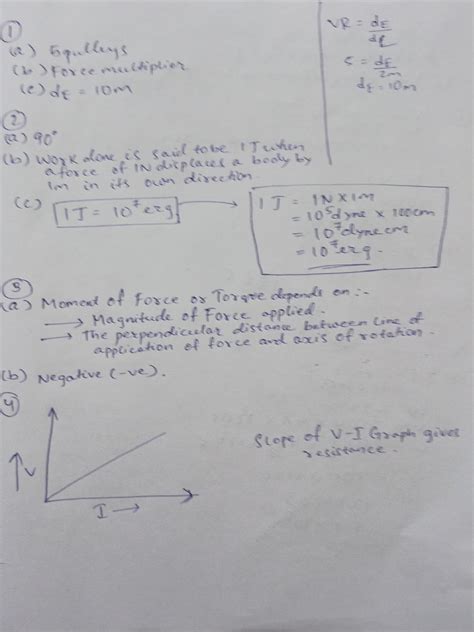 ①
(a) 5 pulleys
(b) Force multiplier
(c) dE = 10m
VR = dE/dL
5 = dE/2m
dE = 10m
②
(a) 90°
(b) Work done is said to be 1J when
a force of 1N displaces a body by
1m in its own direction.
(c) 1J = 10⁷ erg
1J = 1N × 1m
= 10⁵ dyne × 100cm
= 10⁷ dyne cm
= 10⁷ erg.
③
(a) Moment of Force or Torque depends on :-
→ Magnitude of Force applied.
→ The perpendicular distance between line of
application of force and axis of rotation.
(b) Negative (-ve).
④
↑ V
I →
Slope of V-I Graph gives
resistance.